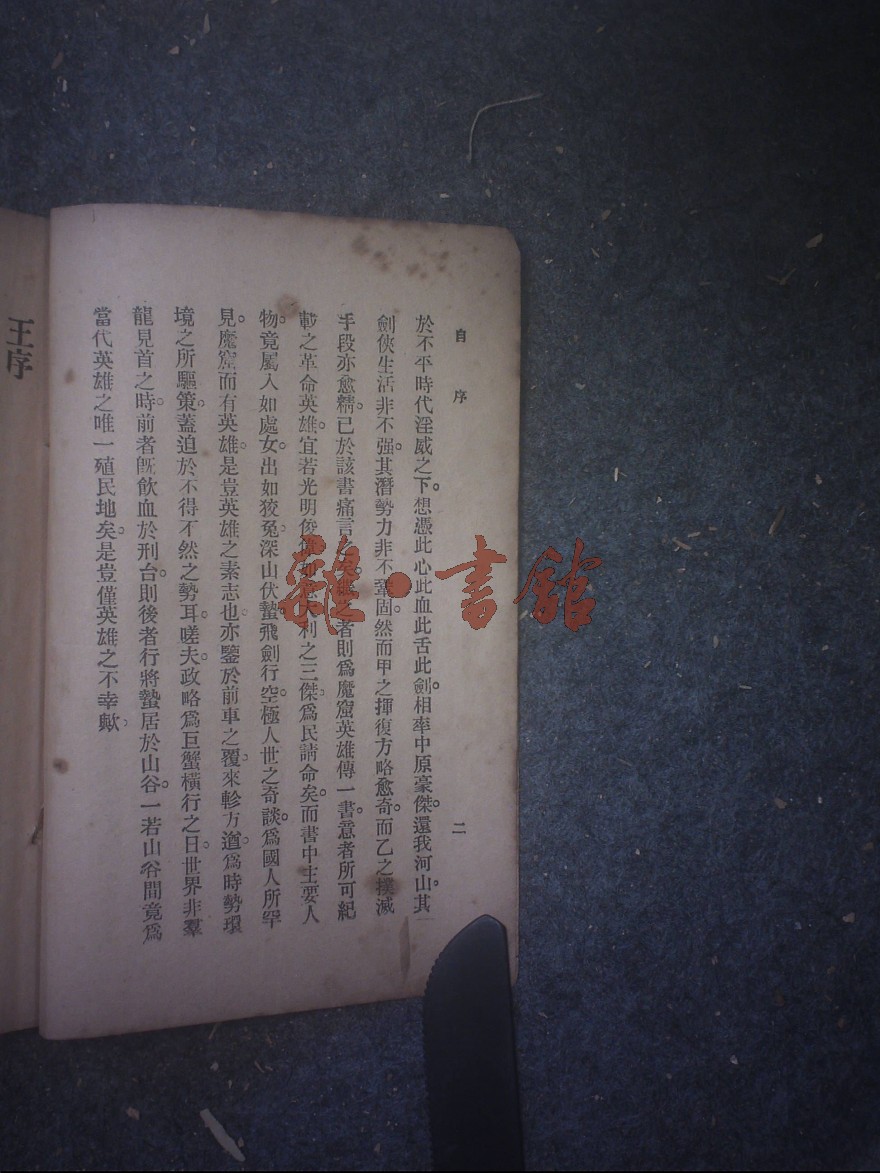 自序
二
於不平時代淫威之下。想憑此心此血此舌此劍。相率中原豪傑。還我河山。其
劍俠生活非不强。其潛勢力非不鞏固。然而甲之揮復方略愈奇。而乙之撲滅
手段亦愈精。已於該書痛言之 者則爲魔窟英雄傳一書。意者所可紀
載之革命英雄。宜若光明俊偉 大利之三傑。爲民請命矣。而書中主要人
物。竟屬入如處女。出如狡兔。深山伏蟄。飛劍行空。極人世之奇談。爲國人所罕
見。魔窟而有英雄。是豈英雄之素志也。亦鑒於前車之覆。來軫方遒。爲時勢環
境之所驅策。蓋迫於不得不然之勢耳。嗟夫。政略爲巨蟹橫行之日。世界非羣
龍見首之時。前者旣飲血於刑台。則後者行將蟄居於山谷。一若山谷間竟爲
當代英雄之唯一殖民地矣。是豈僅英雄之不幸歟。
王序
雜·書館